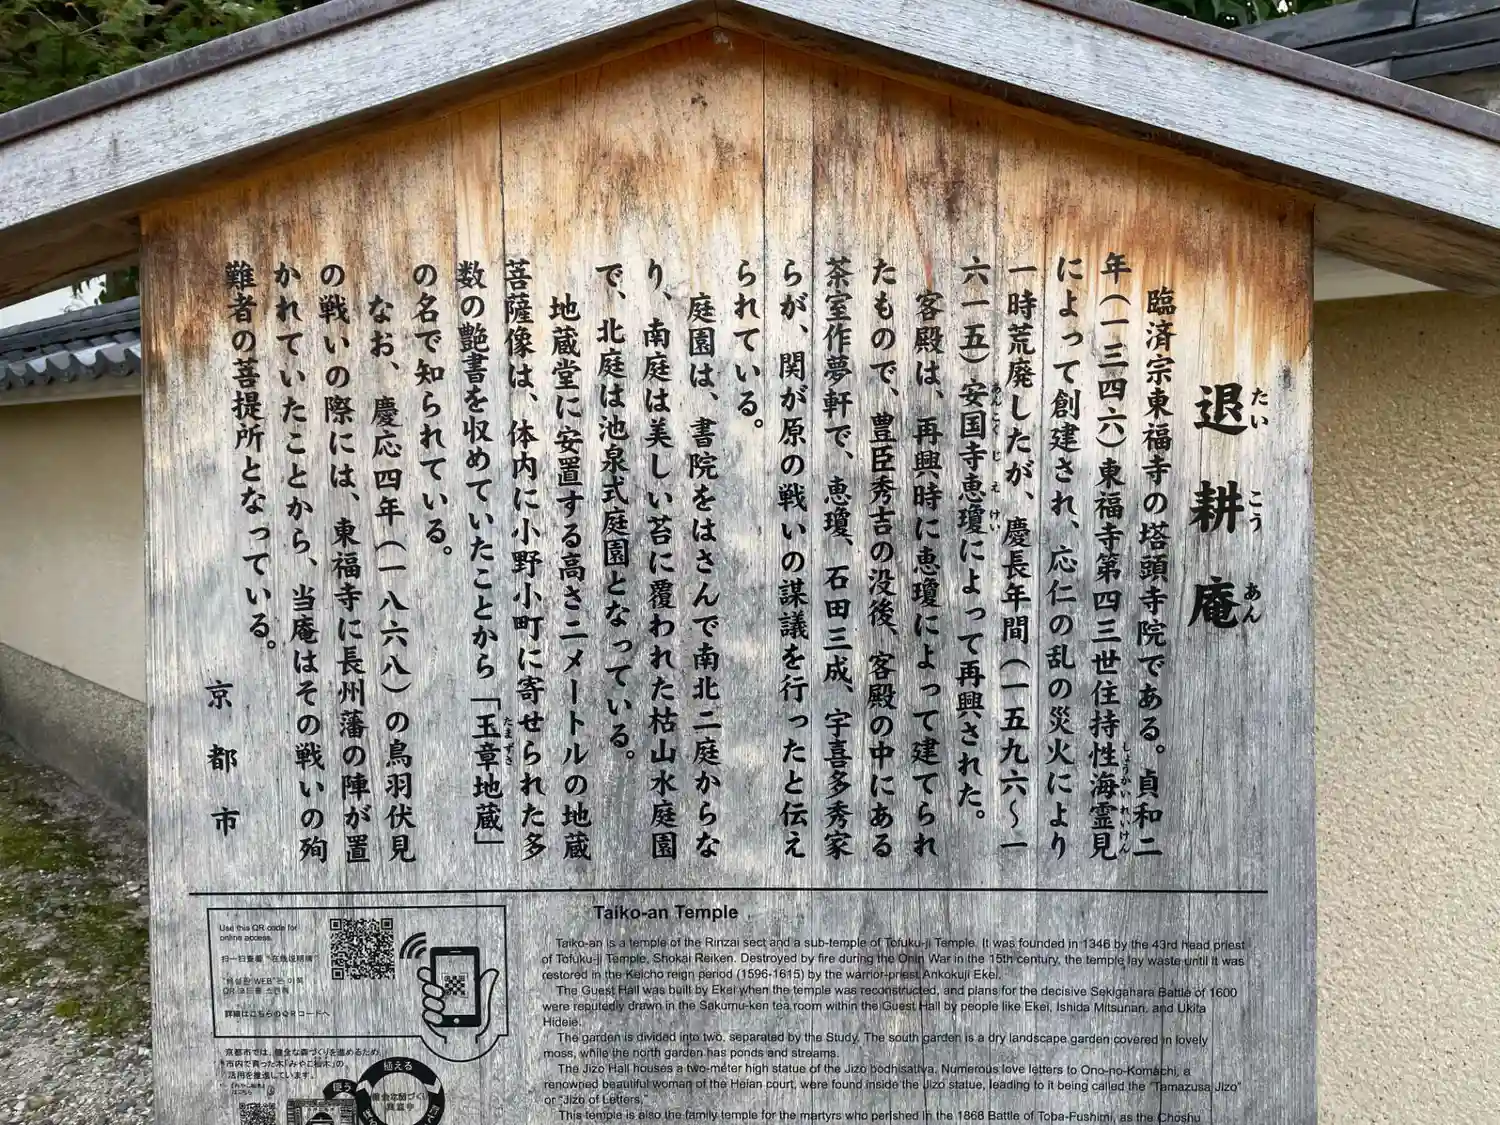 退耕庵
たいこうあん
臨済宗東福寺の塔頭寺院である。貞和二
年（一三四六）東福寺第四三世住持性海霊見
しょうかいれいけん
によって創建され、応仁の乱の災火により
一時荒廃したが、慶長年間（一五九六～一
六一五）安国寺恵瓊によって再興された。
あんこくじえけい
客殿は、再興時に恵瓊によって建てられ
たもので、豊臣秀吉の没後、客殿の中にある
茶室作夢軒で、恵瓊、石田三成、宇喜多秀家
らが、関が原の戦いの謀議を行ったと伝え
られている。
庭園は、書院をはさんで南北二庭からな
り、南庭は美しい苔に覆われた枯山水庭園
で、北庭は池泉式庭園となっている。
地蔵堂に安置する高さ二メートルの地蔵
菩薩像は、体内に小野小町に寄せられた多
数の艶書を収めていたことから「玉章地蔵」
たまずさ
の名で知られている。
なお、慶応四年（一八六八）の鳥羽伏見
の戦いの際には、東福寺に長州藩の陣が置
かれていたことから、当庵はその戦いの殉
難者の菩提所となっている。
京都市
Taiko-an Temple
Taiko-an is a temple of the Rinzai sect and a sub-temple of Tofuku-ji Temple. It was founded in 1346 by the 43rd head priest
of Tofuku-ji Temple, Shokai Reiken. Destroyed by fire during the Onin War in the 15th century, the temple lay waste until it was
restored in the Keicho reign period (1596-1615) by the warrior-priest Ankokuji Ekei.
The Guest Hall was built by Ekei when the temple was reconstructed, and plans for the decisive Sekigahara Battle of 1600
were reputedly drawn in the Sakumu-ken tea room within the Guest Hall by people like Ekei, Ishida Mitsunari, and Ukita
Hideie.
The garden is divided into two, separated by the Study. The south garden is a dry landscape garden covered in lovely
moss, while the north garden has ponds and streams.
The Jizo Hall houses a two-meter high statue of the Jizo bodhisativa. Numerous love letters to Ono-no-Komachi, a
renowned beautiful woman of the Heian court, were found inside the Jizo statue, leading to it being called the "Tamazusa Jizo"
or "Jizo of Letters."
This temple is also the family temple for the martyrs who perished in the 1868 Battle of Toba-Fushimi, as the Choshu
Use this QR code for
online access.
扫一扫查看"在线说明牌"
QR 코드를 스캔해
詳細はこちらのQRコードへ
京都市では、健全な森づくりを進めるため、
市内で育った木「みやこ杣木」の
活用を推進しています。
植える